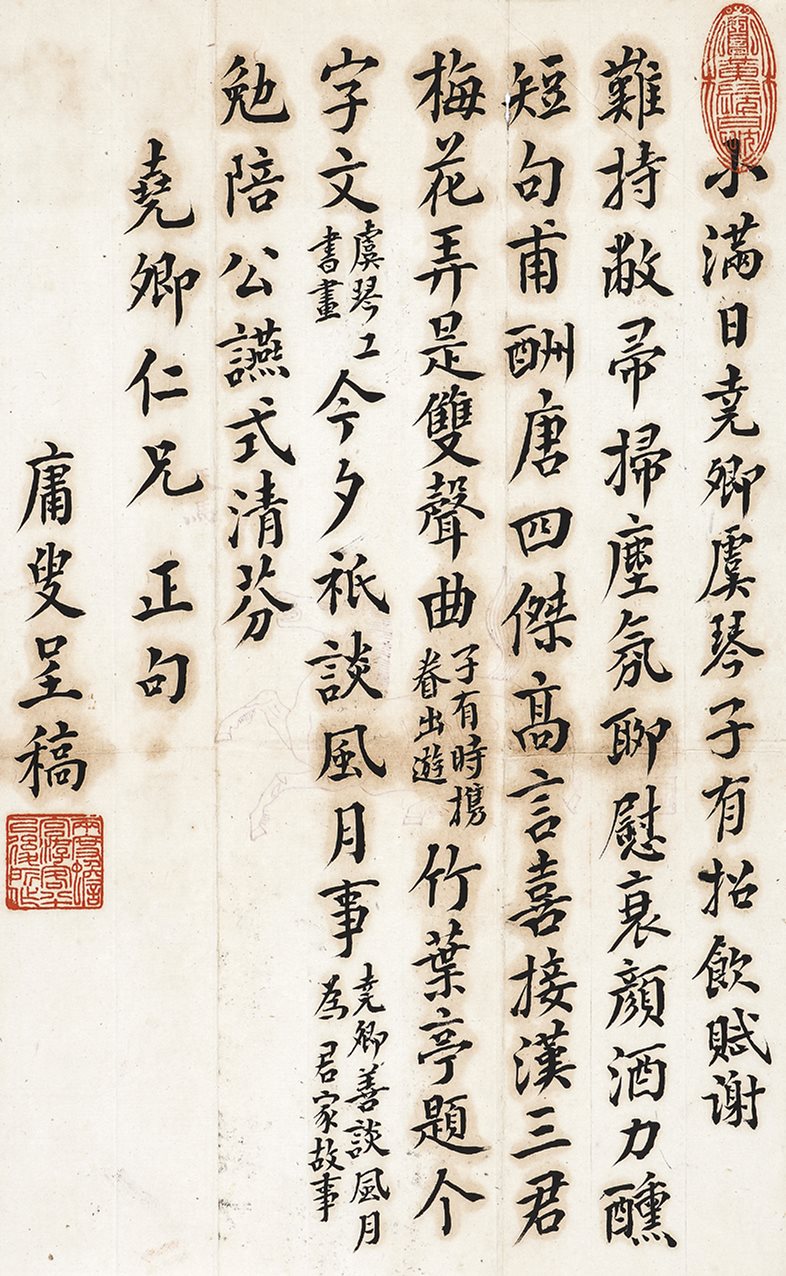 小滿日堯卿虞琴子有招飲賦謝
難持敝帚掃塵氛聊慰衰顏酒力醺
短句甫酬唐四傑高言喜接漢三君
梅花弄是雙聲曲子有時攜眷出遊竹葉亭題个
字文虞琴工書畫今夕祇談風月事堯卿善談風月為君家故事
勉陪公讌式清芬
堯卿仁兄正句
庸叟呈稿